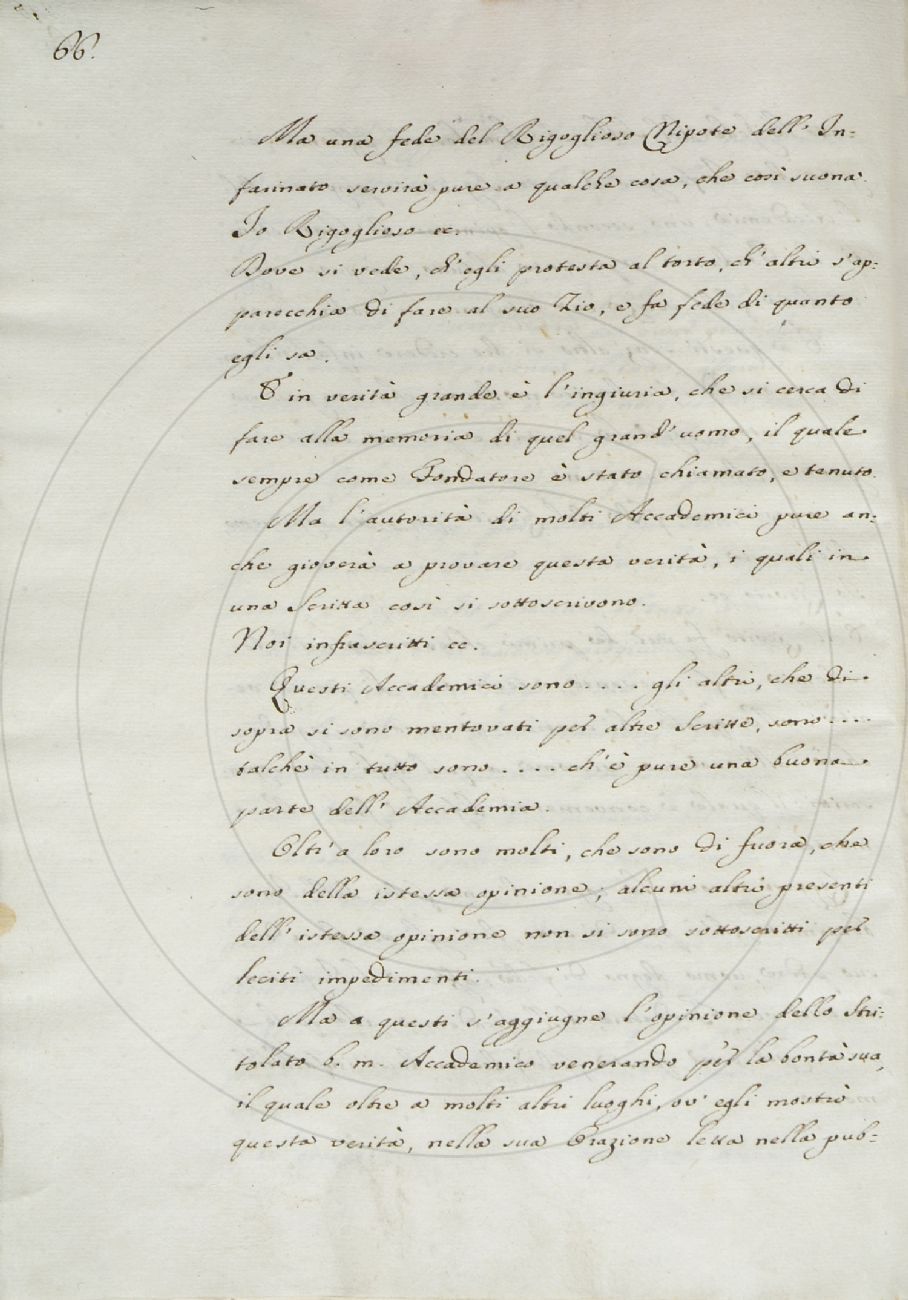 66.
Ma una fede del Rigoglioso Nipote dell' In-
farinato servirà pure a qualche cosa, che così suona.
Io Rigoglioso ec.
Dove si vede, ch' egli protesta al torto, ch' altri s' ap-
parecchia di fare al suo Zio, e fa fede di quanto
egli sa.
E in verità grande è l' ingiuria, che si cerca di
fare alla memoria di quel grand' uomo, il quale
sempre come Fondatore è stato chiamato, e tenuto.
Ma l' autorità di molti Accademici pure an-
che gioverà a provare questa verità, i quali in
una Scritta così si sottoscrivono.
Noi infrascritti ec.
Questi Accademici sono .... gli altri, che di
sopra si sono mentovati per altre Scritte, sono ....
talchè in tutto sono .... ch' è pure una buona
parte dell' Accademia.
Oltr' a loro sono molti, che sono di fuora, che
sono della istessa opinione; alcuni altri presenti
dell' istessa opinione non si sono sottoscritti per
leciti impedimenti.
Ma a questi s' aggiugne l' opinione dello Stri-
tolato b. m. Accademico venerando per la bontà sua,
il quale oltre a molti altri luoghi, ov' egli mostrò
questa verità, nella sua Orazione letta nella pub-